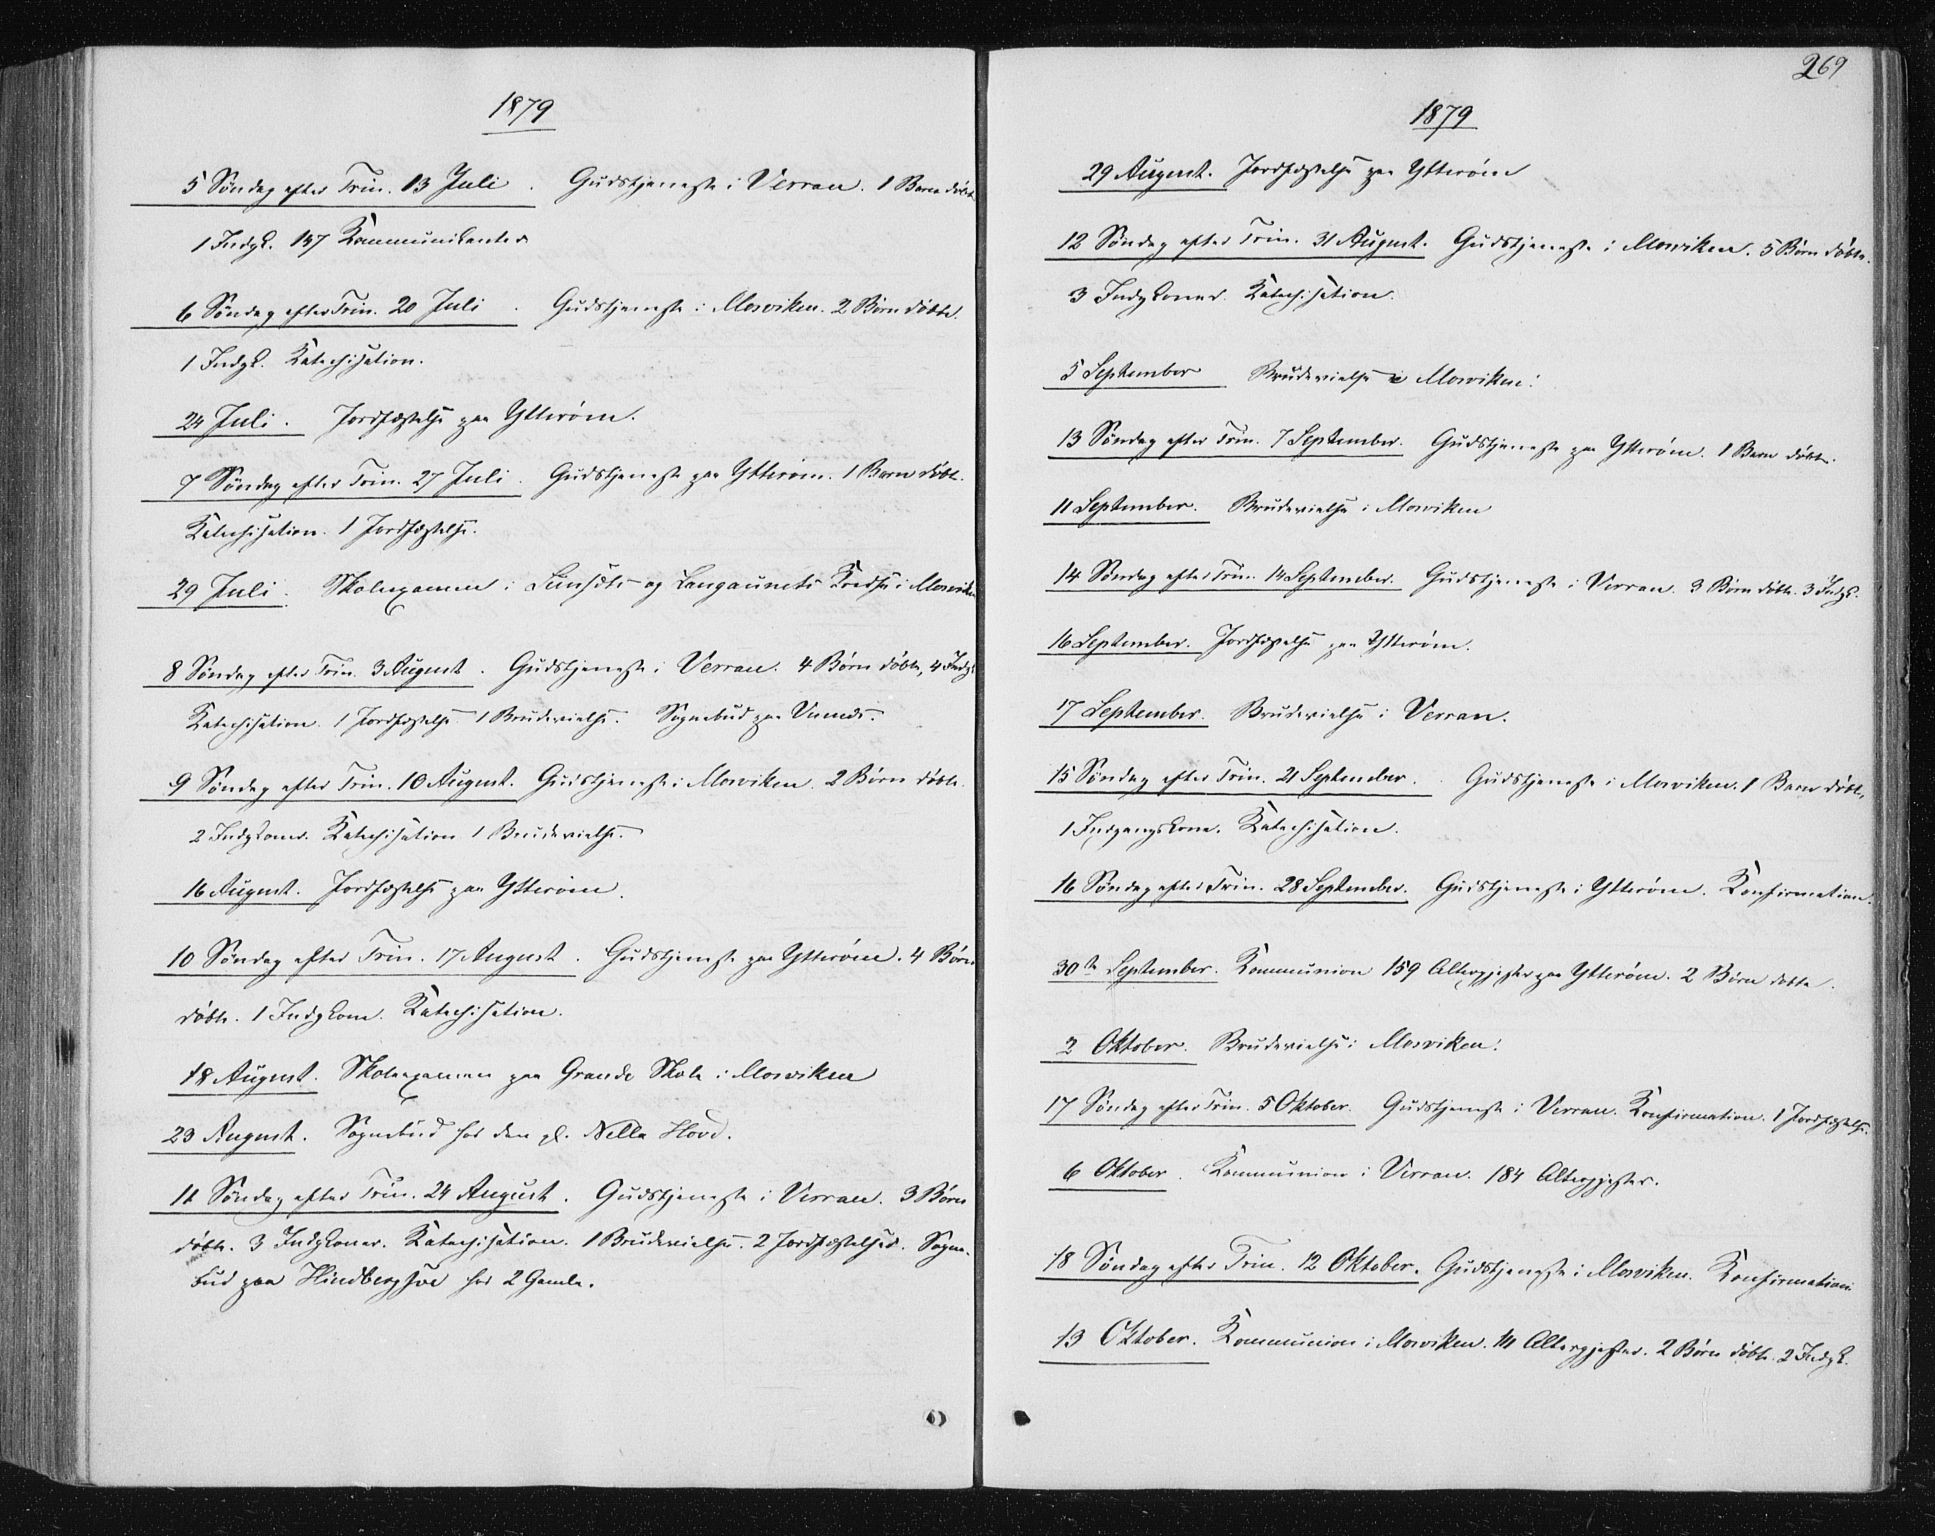 1879
5 Søndag efter Trin. 13 Juli. Gudstjeneste i Verran. 1 Barn døbt
1 Indgk. 137 Kommunikanter
6 Søndag efter Trin. 20 Juli. Gudstjeneste i Mosviken. 2 Børn døbte.
1 Indgk. Katechisation.
24 Juli. Jordfæstelse paa Ytterøen.
7 Søndag efter Trin. 27 Juli. Gudstjeneste paa Ytterøen. 1 Barn døbt.
Katechisation. 1 Jordfæstelse.
29 Juli. Skoleexamen i og Langaunets Kredse i Mosviken
8 Søndag efter Trin. 3 August. Gudstjeneste i Verran. 4 Børn døbte, 4 Indgk
Katechisation. 1 Jordfæstelse 1 Brudevielse. Sognebud paa
9 Søndag efter Trin. 10 August. Gudstjeneste i Mosviken. 2 Børn døbte.
2 Indgkoner. Katechisation 1 Brudevielse.
16 August. Jordfæstelse paa Ytterøen.
10 Søndag efter Trin. 17 August. Gudstjeneste paa Ytterøen. 4 Børn
døbte. 1 Indgkone. Katechisation.
18 August. Skoleexamen paa Grande Skole i Mosviken
23 August. Sognebud hos den gl. Nella Hovd.
11 Søndag efter Trin. 24 August. Gudstjeneste i Verran. 3 Børn
døbte. 3 Indgkoner. Katechisation. 1 Brudevielse. 2 Jordfæstelser. Sogne-
bud paa hos 2 Gamle.
269
1879
29 August. Jordfæstelse paa Ytterøen
12 Søndag efter Trin. 31 August. Gudstjeneste i Mosviken. 5 Børn døbte.
3 Indgkoner. Katechisation.
5 September Brudevielse i Mosviken.
13 Søndag efter Trin. 7 September. Gudstjeneste paa Ytterøen. 1 Barn døbt.
11 September. Brudevielse i Mosviken
14 Søndag efter Trin. 14 September. Gudstjeneste i Verran. 3 Børn døbte. 3 Indgk.
16 September. Jordfæstelse paa Ytterøen.
17 September. Brudevielse i Verran.
15 Søndag efter Trin. 21 September. Gudstjeneste i Mosviken. 1 Barn døbt,
1 Indgangskone. Katechisation.
16 Søndag efter Trin. 28 September. Gudstjeneste i Ytterøen. Konfirmation.
30te September. Kommunion 159 Altergjester paa Ytterøen. 2 Børn døbte.
2 Oktober. Brudevielse i Mosviken.
17 Søndag efter Trin. 5 Oktober. Gudstjeneste i Verran. Konfirmation. 1 Jordfæstelse.
6 Oktober. Kommunion i Verran. 184 Altergjester.
18 Søndag efter Trin. 12 Oktober. Gudstjeneste i Mosviken. Konfirmation.
13 Oktober. Kommunion i Mosviken. 111 Altergjester. 2 Børn døbte. 2 Indgk.